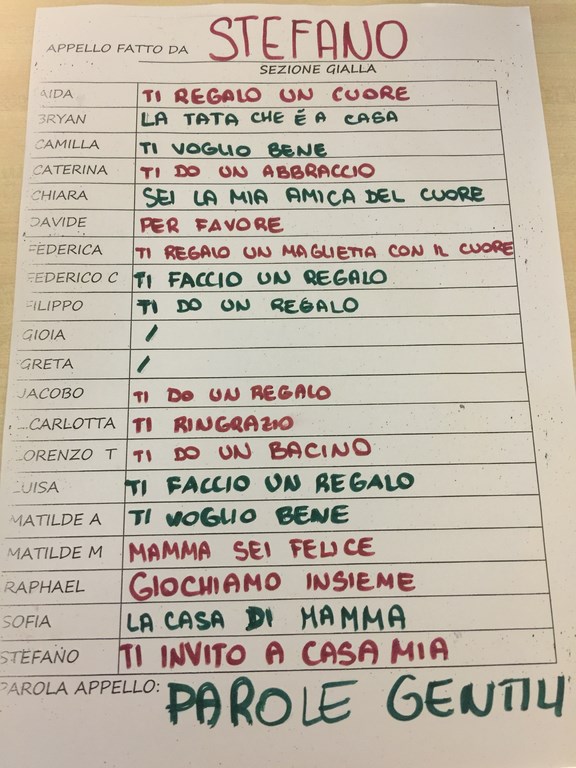 APPELLO FATTO DA STEFANO
SEZIONE GIALLA
AIDA TI REGALO UN CUORE
BRYAN LA TATA CHE È A CASA
CAMILLA TI VOGLIO BENE
CATERINA TI DO UN ABBRACCIO
CHIARA SEI LA MIA AMICA DEL CUORE
DAVIDE PER FAVORE
FEDERICA TI REGALO UN MAGLIETTA CON IL CUORE
FEDERICO C TI FACCIO UN REGALO
FILIPPO TI DO UN REGALO
GIOIA /
GRETA /
JACOBO TI DO UN REGALO
CARLOTTA TI RINGRAZIO
LORENZO T TI DO UN BACINO
LUISA TI FACCIO UN REGALO
MATILDE A TI VOGLIO BENE
MATILDE M MAMMA SEI FELICE
RAPHAEL GIOCHIAMO INSIEME
SOFIA LA CASA DI MAMMA
STEFANO TI INVITO A CASA MIA
PAROLA APPELLO: PAROLE GENTILI